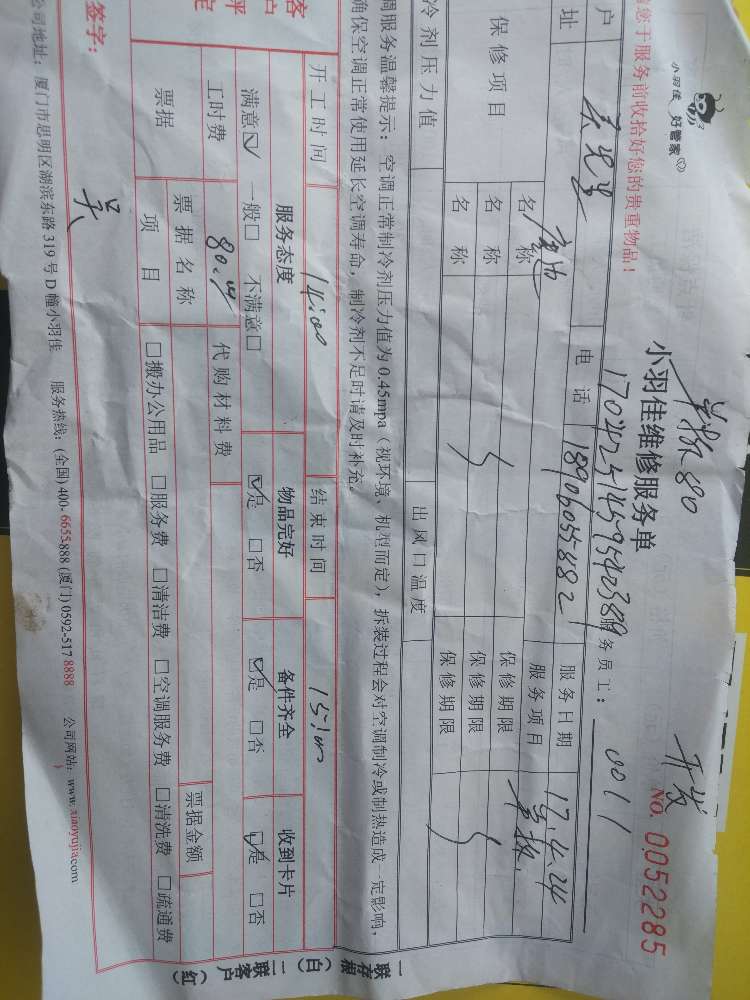 小羽佳 好管家
请您于服务前收拾好您的贵重物品！
单拆80
开发
小羽佳维修服务单
NO. 0052285
服务员工： 0011
户
电话 18906055882
服务日期 17.4.24
址
服务项目 单拆
保修项目
名称
保修期限
名称
保修期限
名称
保修期限
冷剂压力值
出风口温度
调服务温馨提示：空调正常制冷剂压力值为0.45mpa（视环境、机型而定），拆装过程会对空调制冷或制热造成一定影响，
确保空调正常使用延长空调寿命，制冷剂不足时请及时补充。
开工时间 14:00 结束时间
客户评定
服务态度 物品完好 备件齐全 收到卡片
满意☑ 一般□ 不满意□ ☑是 □否 ☑是 □否 ☑是 □否
工时费 80.00 代购材料费
票据 票据名称 票据金额
项目 □搬办公用品 □服务费 □清洁费 □空调服务费 □清洗费 □疏通费
签字： 吴
公司地址：厦门市思明区湖滨东路319号D幢小羽佳 服务热线：(全国) 400-6655-888 (厦门) 0592-517 8888 公司网站：www.xiaoyujia.com
一联存根（白） 二联客户（红）